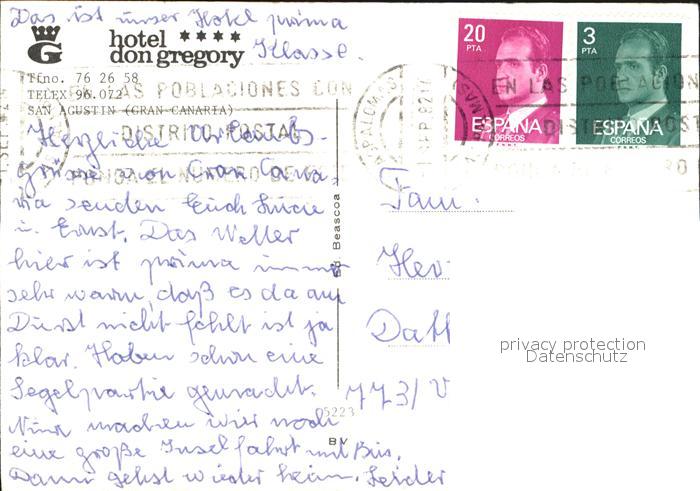 Das ist unser Hotel prima
Klasse.
G
hotel ★★★★
don gregory
Tfno. 76 26 58
TELEX 96.072
SAN AGUSTIN (GRAN CANARIA)
AS POBLACIONES CON
DISTRITO POSTAL
PONGA EL NUMERO DE
Herzliche Urlaubs-
grüße von Gran Cana-
ria senden Euch
u. Ernst. Das Wetter
hier ist prima immer
sehr warm, daß es da am
Durst nicht fehlt ist ja
klar. Haben schon eine
Segelpartie gemacht.
Nun machen wir noch
eine große Inselfahrt mit Bus.
Dann gehst wieder heim. Leider
Ed. Beascoa
5223
BV
20
PTA
ESPAÑA
CORREOS
F.N.M.T.
3
PTA
ESPAÑA
CORREOS
F.N.M.T.
EN LAS POBLACION
DIST
Fam.
Her
Datt
773/V
privacy protection
Datenschutz